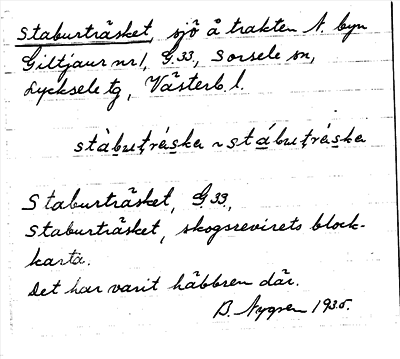 Staburträsket, sjö å trakten N. byn
Giltjaur nr 1, G. 33, Sorsele sn,
Lycksele tg, Västerb. l.
stàbuṭrḙ́ska ~ stábuṭrḙ́ska
Staburträsket, G 33,
Staburträsket, skogsrevirets block-
karta.
Det har varit häbbren där.
B. Nygren 1935.